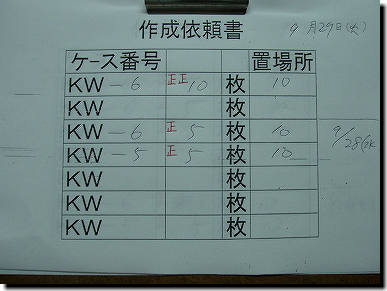 作成依頼書 9月29日(火)
ケース番号 置場所
KW-6 正正10 枚 10
KW 枚
KW-6 正5 枚 10
KW-5 正5 枚 10
9/28
KW 枚
KW 枚
KW 枚